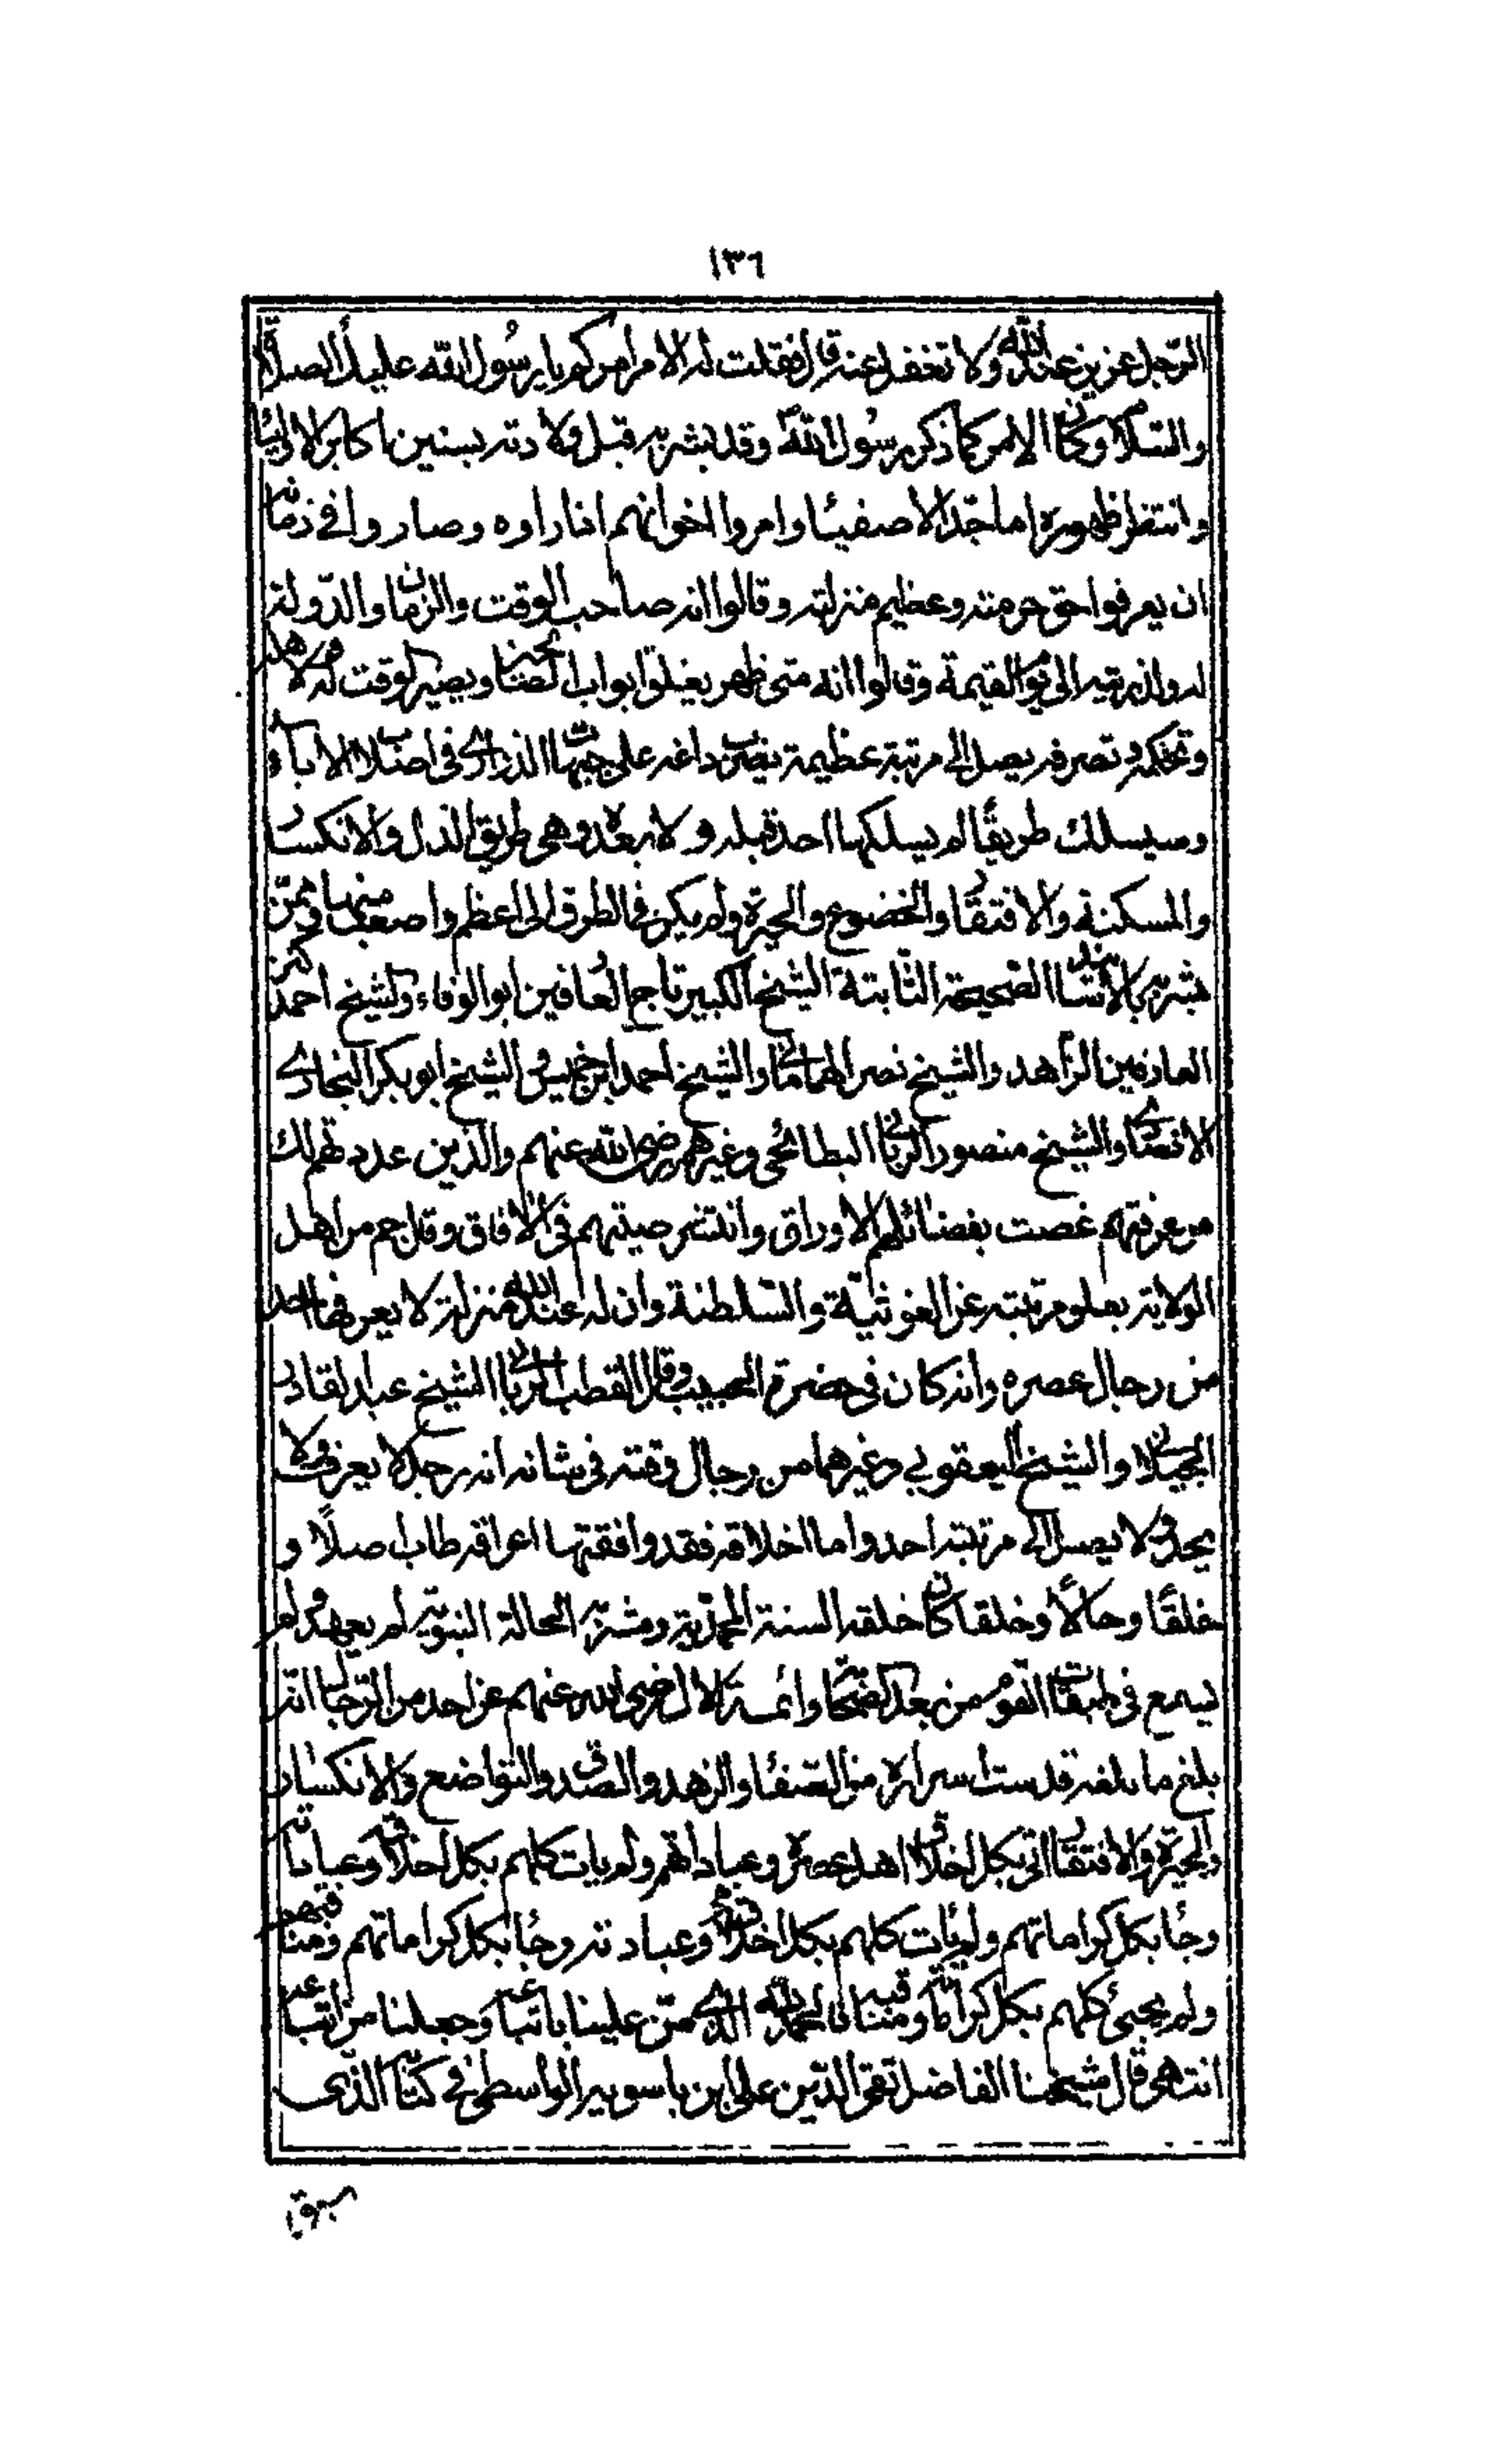 ١٣٦
الرجل عزيز عند الله ولا تغفل عنه قال فقلت له الامر امركم يا رسول الله عليك الصلاة
والسلام وكان الامر كما ذكر رسول الله وقد بشر به قبل ولادته بسنين اكابر الاولياء
وانتظر ظهوره اماجد الاصفياء وامروا اخوانهم اذا راوه وصاروا في زمانه
ان يعرفوا حق حرمته وعظيم منزلته وقالوا انه صاحب الوقت والزمان والدولة
له ولذريته الى يوم القيمة وقالوا انه متى ظهر يغلق ابواب ويصير الوقت له ولاهله
وتحكيمه وتصرفه يصل الى مرتبة عظيمة داغه على الذراري في اصلاب الاباء
وسيسلك طريقًا لم يسلكها احد قبله ولا بعده وهي طريق الذل والانكسار
والمسكنة والافتقار والخضوع والحيرة ولم يكن في الطرق الى الله اعظم واصعب منها وممن
بشر به الصحيحة الثابتة الشيخ الكبير تاج العارفين ابو الوفاء والشيخ احمد
الزاهد والشيخ نصر الهماماني والشيخ احمد ابن خميس والشيخ ابو بكر النجاري
الانصاري والشيخ منصور الرباني البطائحي وغيرهم رضي الله عنهم والذين عددتهم لك
من عرفتهم غصت بفضائلهم الاوراق وانتشر صيتهم في الافاق وقال جم من اهل
الولاية بعلو مرتبته عن الغوثية والسلطنة وان له عند الله منزلة لا يعرفها احد
من رجال عصره وانه كان في حضرة الحبيب وقال القطب الرباني الشيخ عبد القادر
الجيلاني والشيخ اليعقوبي وغيرهما من رجال وقته في شانه انه رجل لا يعرف ولا
يحد ولا يصل الى مرتبته احد واما اخلاقه فقد وافقتها اعراقه طاب اصلاً و
خلقًا وحالاً وخلقا كان خلقه السنة المحمدية ومشربه الحالة النبوية لم يعهد ولم
يسمع في طبقات القوم من بعد الصحابة وائمة الال رضي الله عنهم عن احد من الرجال انه
بلغ ما بلغه قدست اسراره من الصفا والزهد والصدق والتواضع والانكسار
والحيرة والافتقار اتى بكل اخلاق اهل عصره وعباداتهم ولم يات كلهم بكل اخلاقه وعباداته
وجاء بكل كراماتهم ولم يات كلهم بكل اخلاقه وعبادته وجاء بكل كراماتهم ومناقبهم
ولم يجئ كلهم بكل كراماته ومناقبه فالحمد لله الذي من علينا باتباعه وجعلنا من اتباعه
انتهى قال شيخنا الفاضل تقي الدين علي ابن باسويه الواسطي في كتابه الذي
سبق